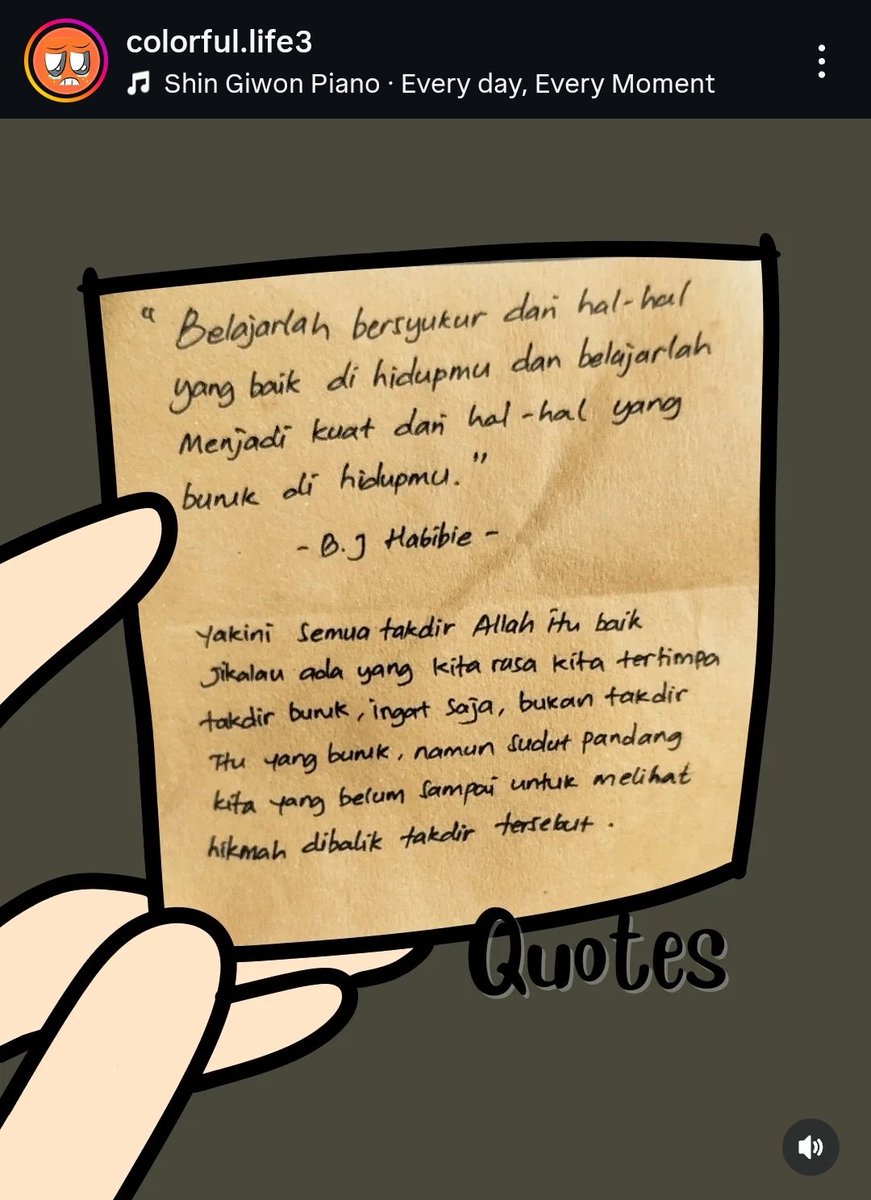 colorful.life3
Shin Giwon Piano · Every day, Every Moment
" Belajarlah bersyukur dari hal-hal
yang baik di hidupmu dan belajarlah
Menjadi kuat dari hal-hal yang
buruk di hidupmu."
- B.J Habibie -
Yakini semua takdir Allah itu baik
Jikalau ada yang kita rasa kita tertimpa
takdir buruk, ingat saja, bukan takdir
Itu yang buruk, namun sudut pandang
kita yang belum sampai untuk melihat
hikmah dibalik takdir tersebut.
Quotes